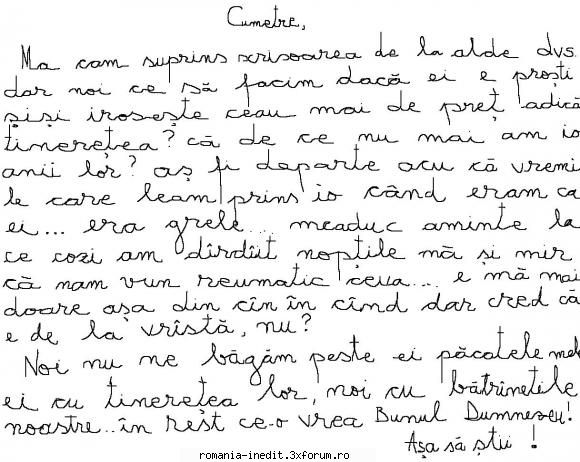 Cumetre,
Ma cam suprins scrisoarea de la alde dvs.
dar noi ce să facim dacă ei e proști
șiși irosește ceau mai de preț adică
tinerețea? că de ce nu mai am io
anii lor? aș fi departe acu că vremi
le care leam prins io când eram ca
ei... era grele... meaduc aminte la
ce cozi am dîrdîit nopțile mă și mir
că nam vun reumatic ceva... e mă mai
doare așa din cîn în cînd dar cred că
e de la vrîstă, nu?
Noi nu ne băgăm peste ei păcatele mele
ei cu tinerețea lor, noi cu bătrînețile
noastre... în rest ce-o vrea Bunul Dumnezeu!
Așa să știi!
romania-inedit.3xforum.ro